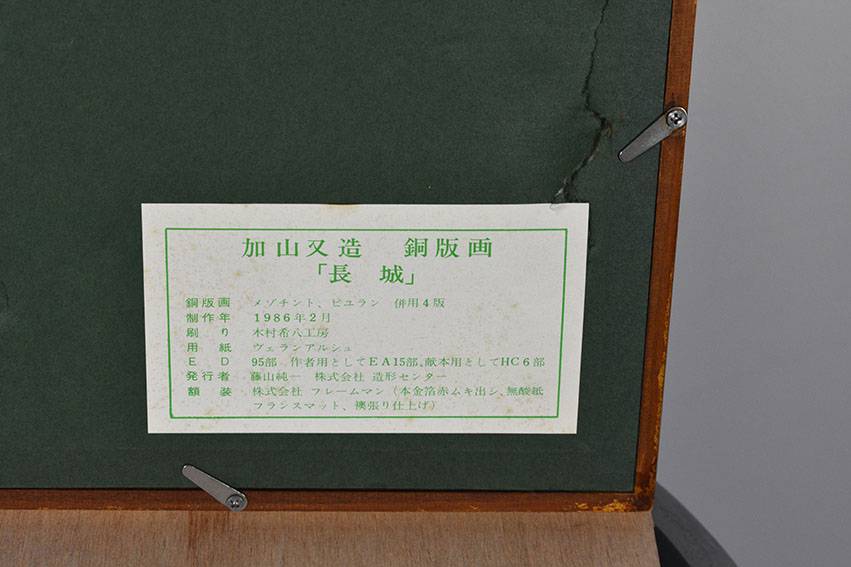 加山又造 銅版画
「長 城」
銅版画 メゾチント、ビュラン 併用4版
制作年 1986年2月
刷り 木村希八工房
用紙 ヴェランアルシュ
ED 95部 作者用としてEA15部、献本用としてHC6部
発行者 藤山純一 株式会社 造形センター
額装 株式会社 フレームマン(本金箔赤ムキ出シ、無酸紙
フランスマット、襖張り仕上げ)